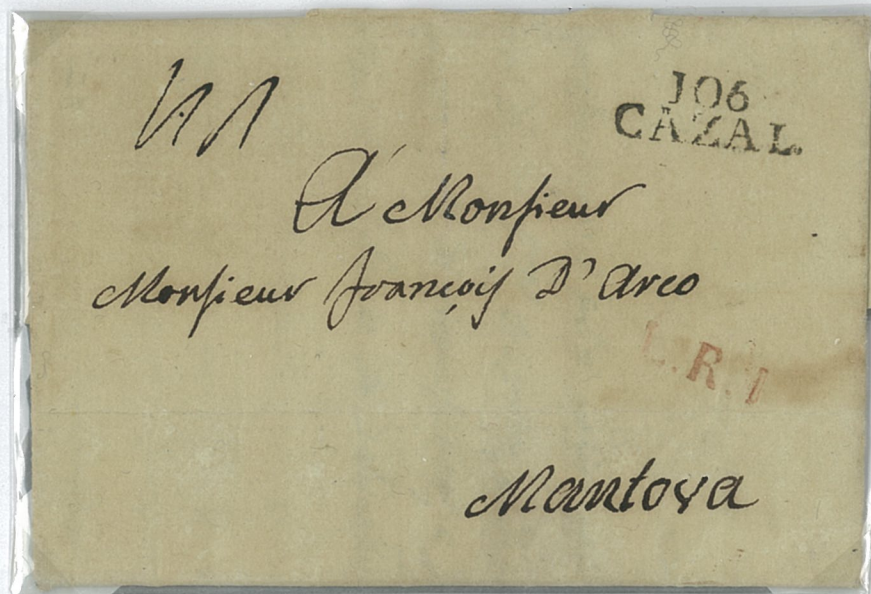 106
CAZAL.
A Monsieur
Monsieur François D'Arco
L.R.I
Mantova